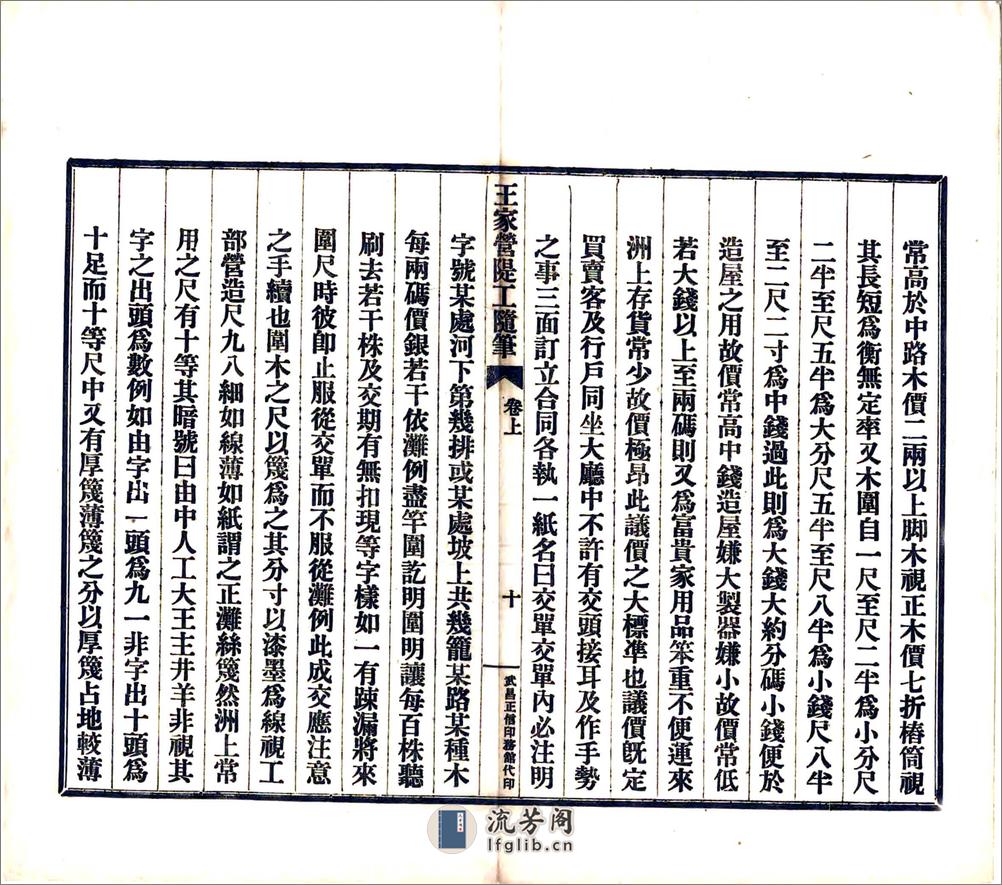 常高於中路木價二兩以上脚木視正木價七折樁筒視
其長短爲衡無定率又木圍自一尺至尺二半爲小分尺
二半至尺五半爲大分尺五半至尺八半爲小錢尺八半
至二尺二寸爲中錢過此則爲大錢大約分碼小錢便於
造屋之用故價常高中錢造屋嫌大製器嫌小故價常低
若大錢以上至兩碼則又爲富貴家用品笨重不便運來
洲上存貨常少故價極昂此議價之大標準也議價旣定
買賣客及行戶同坐大廳中不許有交頭接耳及作手勢
之事三面訂立合同各執一紙名曰交單交單內必注明
王家營隄工隨筆 卷上 十 武昌正信印務館代印
字號某處河下第幾排或某處坡上共幾籠某路某種木
每兩碼價銀若干依灘例盡竿圍訖明圍明讓每百株聽
刷去若干株及交期有無扣現等字樣如一有疎漏將來
圍尺時彼卽止服從交單而不服從灘例此成交應注意
之手續也圍木之尺以篾爲之其分寸以漆墨爲線視工
部營造尺九八細如線薄如紙謂之正灘絲篾然洲上常
用之尺有十等其暗號曰由中人工大王主井羊非視其
字之出頭爲數例如由字出一頭爲九一非字出十頭爲
十足而十等尺中又有厚篾薄篾之分以厚篾占地較薄
流芳阁
lfglib.cn